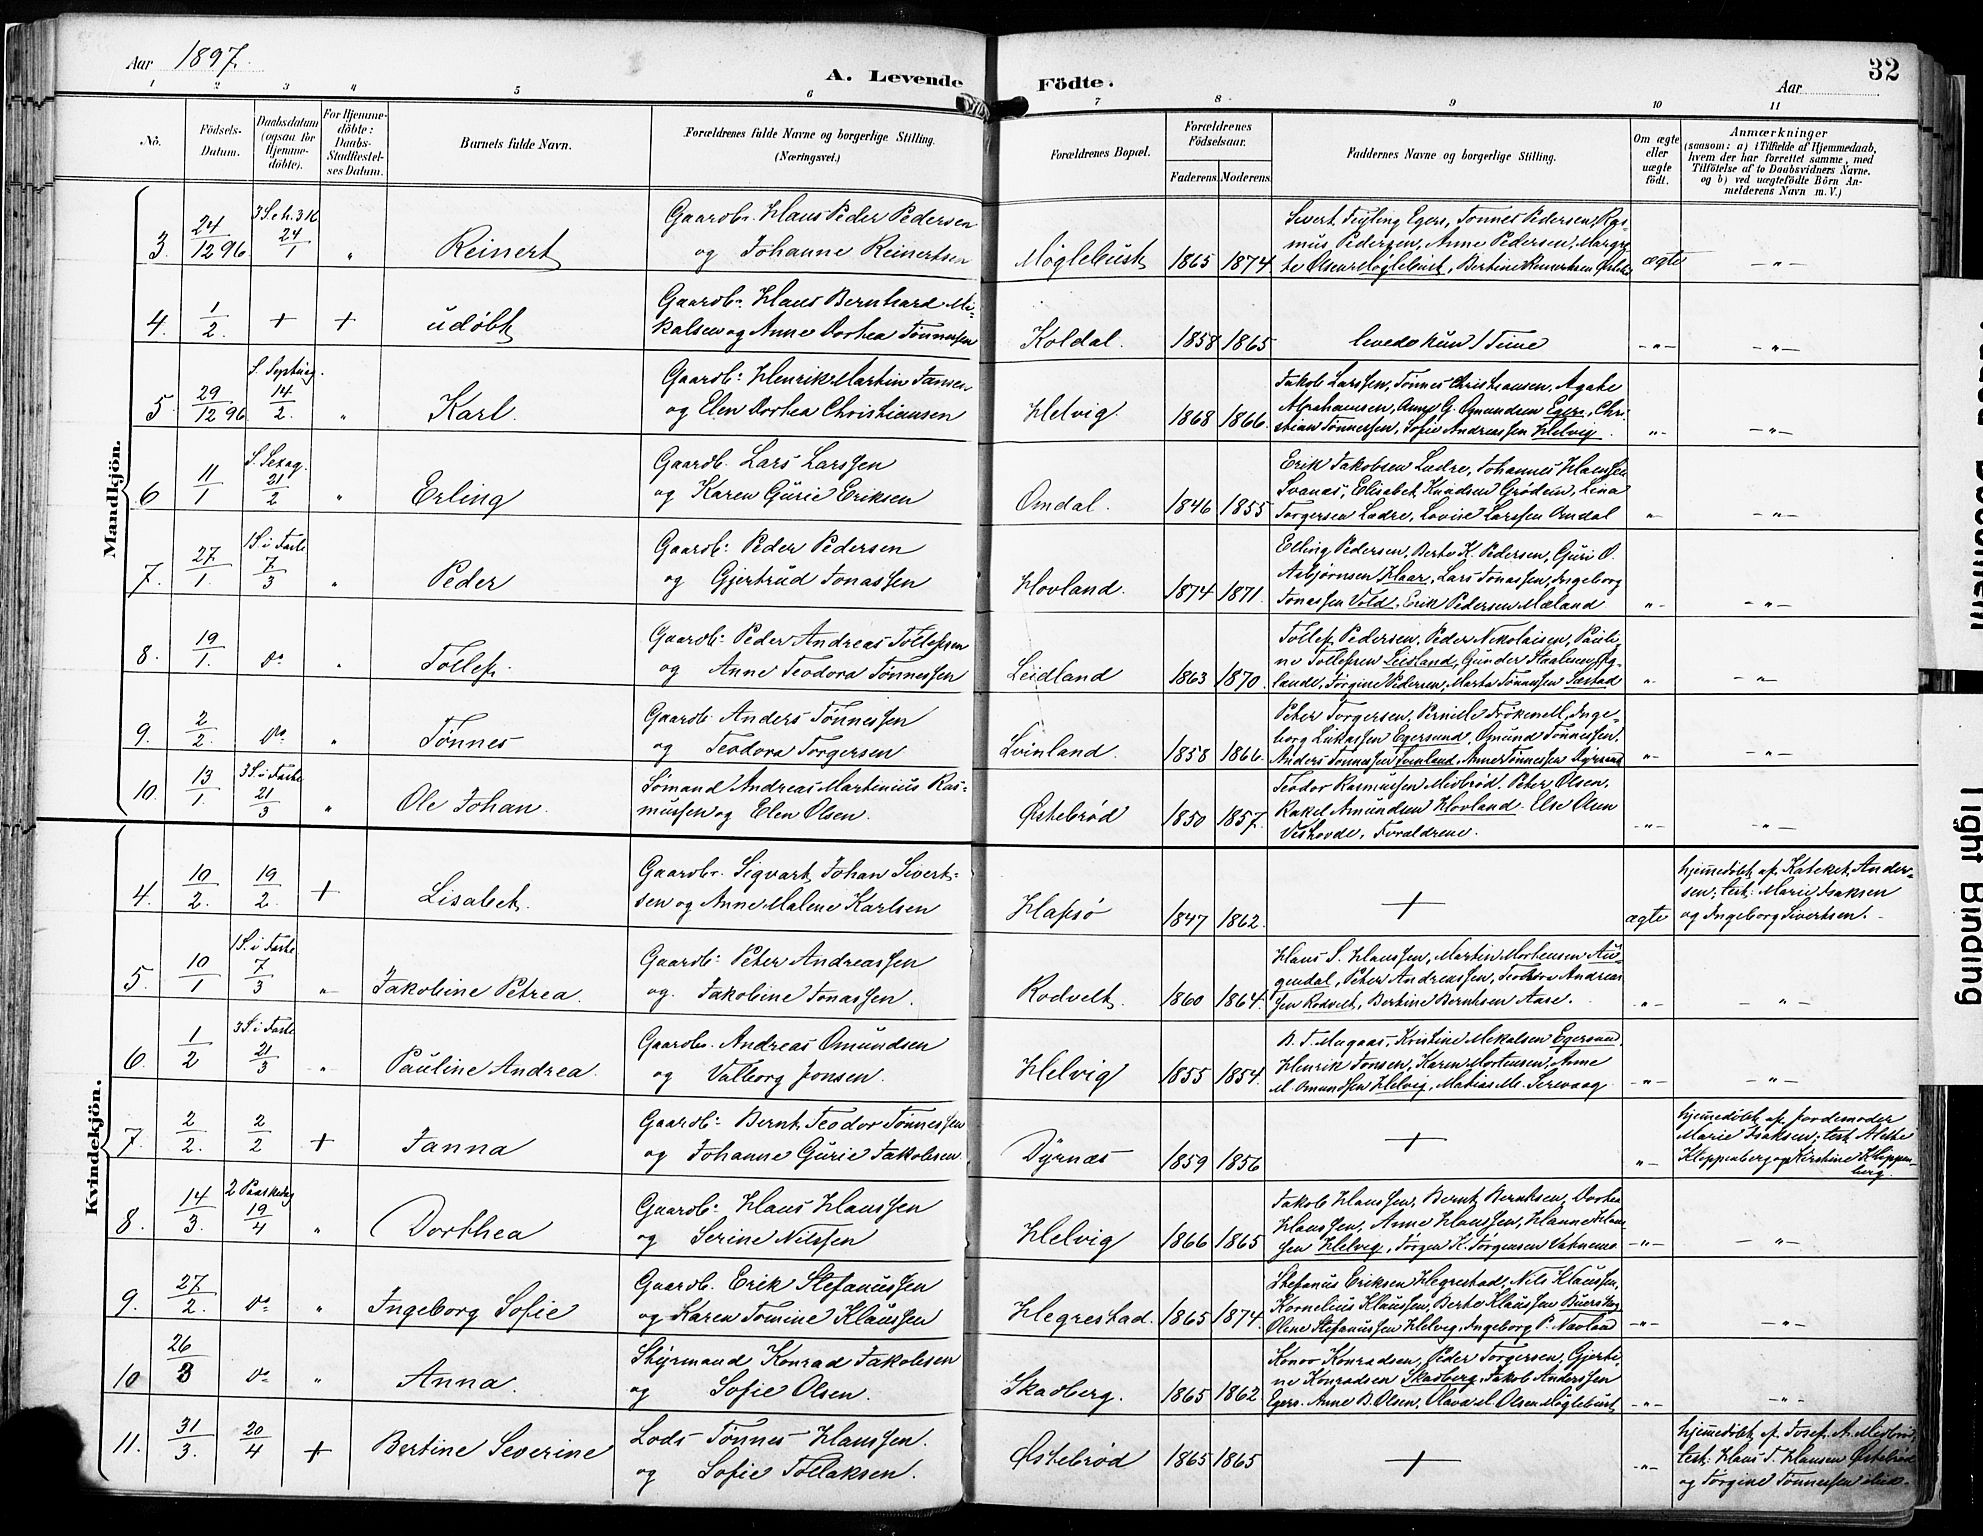 Aar 1897.
A. Levende Födte.
32
Aar
1 2 3 4 5 6 7 8 9 10 11
No.
Födsels-Datum.
Daabsdatum (ogsaa for Hjemme-döbte).
For Hjemme-döbte: Daabs-Stadfæstel-ses Datum.
Barnets fulde Navn.
Forældrenes fulde Navne og borgerlige Stilling. (Næringsvei.)
Forældrenes Bopæl.
Forældrenes Födselsaar.
Faderens. Moderens.
Faddernes Navne og borgerlige Stilling.
Om ægte eller uægte födt.
Anmærkninger (saasom: a) i Tilfælde af Hjemmedaab, hvem der har forrettet samme, med Tilföielse af to Daabsvidners Navne, og b) ved uægtefödte Börn An-melderens Navn m. V.)
Mandkjön.
3. 24/12 96 3 S. e. h. 3 K 24/1 " Reinert
Gaardbr. Hans Peder Pedersen
og Johanne Reinertsen
Møglebust 1865 1874
Sivert Tryling Egers, Tønnes Pedersen, Ras-
mus Pedersen, Anne Pedersen, Margre-
te Olsen Møglebust, Bertine Reinertsen
ægte -"-
4. 1/2 + + udøbt
Gaardbr. Hans Bernhard Mi-
kalsen og Anne Dorhea Tønnessen
Koldal. 1858 1865
levede kun 1 Time
-"- -"-
5. 29/12 96 S. Septuag. 14/2. " Karl.
Gaardbr: Henrik Martin Jansen
og Elen Dorhea Christiansen
Helvig 1868 1866.
Jakob Larssen, Tønnes Christiansen, Agate
Abrahamsen, Anne G. Omundsen Egers, Chri-
stian Tønnessen, Sofie Andreassen Helvig.
"- -"-
6 11/1 S. Sexag. 21/2 " Erling
Gaardb. Lars Larssen
og Karen Gurie Eriksen
Omdal. 1846 1855
Erik Jakobsen Ladre, Johannes Hanssen
Svanæs, Elisabet Knudsen Grødem, Lina
Torgersen Ladre, Lovise Larssen Omdal
"- -"-
7. 27/1 1 S. i Faste 7/3 " Peder
Gaardb: Peder Pedersen
og Gjertrud Jonassen
Hovland. 1874 1871.
Elling Pedersen, Berte K. Pedersen, Guri O.
Asbjørnsen Haar, Lars Jonassen, Ingeborg
Jonassen Vold, Erik Pedersen Mæland
"- -"-
8. 19/1. do " Tollef.
Gaardb: Peder Andreas Tollefsen
og Anne Teodora Tønnessen
Leidland 1863 1870.
Tollef Pedersen, Peder Nikolaisen, Pauli-
ne Tollefsen Leidland, Gunder Staalesen
lande, Torgine Pedersen, Marta Tønnessen
"- -"-
9. 2/2. do " Tønnes
Gaardb. Anders Tønnessen
og Teodora Torgersen
Svinland. 1858 1866.
Peter Torgersen, Pernille Frøkenell, Inge-
borg Lukassen Egersund, Omund Tønnessen,
Anders Tønnessen Svinland, Anne Tønnessen
"- -"-
10. 13/1. 3 S. i Faste 21/3 " Ole Johan.
Sømand Andreas Martinius Ras-
mussen og Elen Olsen.
Østebrød 1850 1857.
Teodor Rasmussen Midbrød, Peter Olsen,
Rakel Amundsen Hovland. Else Olsen
Vestvode, Forældrene.
-"- -"-
Kvindekjön.
4. 10/2. 19/2. + Lisabet.
Gaardbr. Sigvart Johan Sivert-
sen og Anne Malene Karlsen
Hafsø 1847 1862.
+
ægte
hjemmedøbt af Kateket Ander-
sen, test: Marie Isaksen
og Ingeborg Sivertsen.
5. 10/1 1 S. i Faste 7/3 "- Jakobine Petrea.
Gaardb: Peter Andreassen
og. Jakobine Jonassen.
Rodvelt. 1860 1864.
Hans S. Hanssen, Martin Mortensen Au-
gendal, Peter Andreassen, Teodor Andreas
sen Rodvelt, Bertine Berntsen Aase.
"- -"-
6. 1/2 3 S. i Faste 21/3 "- Pauline Andrea.
Gaardb. Andreas Omundsen
og Valborg Jonsen.
Helvig 1855 1854.
B. T. Mugaas, Kristine Mikalsen Egersund
Henrik Jonsen, Karen Mortensen, Anne
M. Omundsen Helvig, Matias M. Sirevaag.
-"- -"-
7. 2/2. 2/2 + Janna
Gaardb: Bernt Teodor Tønnessen
og Johanne Gurie Jakobsen
Dyrnæs 1859 1856
+
-"-
hjemmedøbt af Jordemoder
Marie Isaksen; test Alethe
Kleppenberg og Kirstine Kleppen-
berg.
8. 14/3. 2 Paaskedag 19/4 " Dorthea
Gaardb: Hans Hanssen
og Serine Nilssen
Helvig 1866 1865
Jakob Hanssen, Bernt Berntsen, Dorhea
Hanssen, Anne Hanssen, Hanne Han-
sen Helvig, Jørgen K. Jørgensen Vatnemo
-"- -"-
9. 27/2. do " Ingeborg Sofie
Gaardb. Erik Stefanussen
og Karen Tomine Klaussen
Hegrestad. 1865 1874.
Stefanus Eriksen Hegrestad, Nils Klaussen,
Kornelius Klaussen, Berte Klaussen
Oline Stefanussen Helvig, Ingeborg P. Navland
-"- -"-
10 26/3 do " Anna.
Styrmand Konrad Jakobsen
og Sofie Olsen.
Skadberg. 1865 1862
Konov Konradsen, Peder Torgersen, Gjerti-
ne Konradsen Skadberg, Jakob Anderssen
Egers. Anne B. Olsen, Olava M. Olsen Møglebust
-"- -"-
11. 31/3. 20/4 + Bertine Severine
Lods Tønnes Hanssen.
og Sofie Tollaksen.
Østebrød 1865 1865
+
-"-
hjemmedøbt af Josef A. Midbrød,
test: Hans T. Hansen Østebrød
og Torgine Tønnessen
Tight Binding